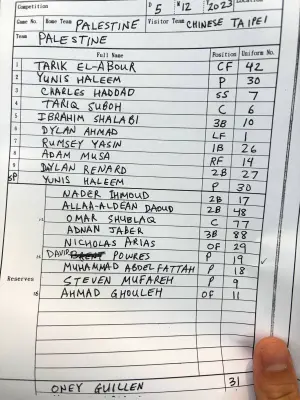 Competition D 5 M 12 Y 2023 Location
Game No. Home Team PALESTINE Visitor Team CHINESE TAIPEI
Team PALESTINE
Full Name Position Uniform No.
1 TARIK EL-ABOUR CF 42
2 YUNIS HALEEM P 30
3 CHARLES HADDAD SS 7
4 TARIQ SUBOH C 6
5 IBRAHIM SHALABI 3B 10
6 DYLAN AHMAD LF 1
7 RUMSEY YASIN 1B 26
8 ADAM MUSA RF 14
9 DYLAN RENARD 2B 27
SP YUNIS HALEEM P 30
NADER IHMOUD 2B 17
ALLAA-ALDEAN DAOUD 2B 48
OMAR SHUBLAQ C 77
ADNAN JABER 3B 88
NICHOLAS ARIAS OF 29
DAVID POWRES P 19
MUHAMMAD ABDEL FATTAH P 18
Reserves STEVEN MUFAREH P 9
AHMAD GHOULEH OF 11
ONEY GUILLEN 31